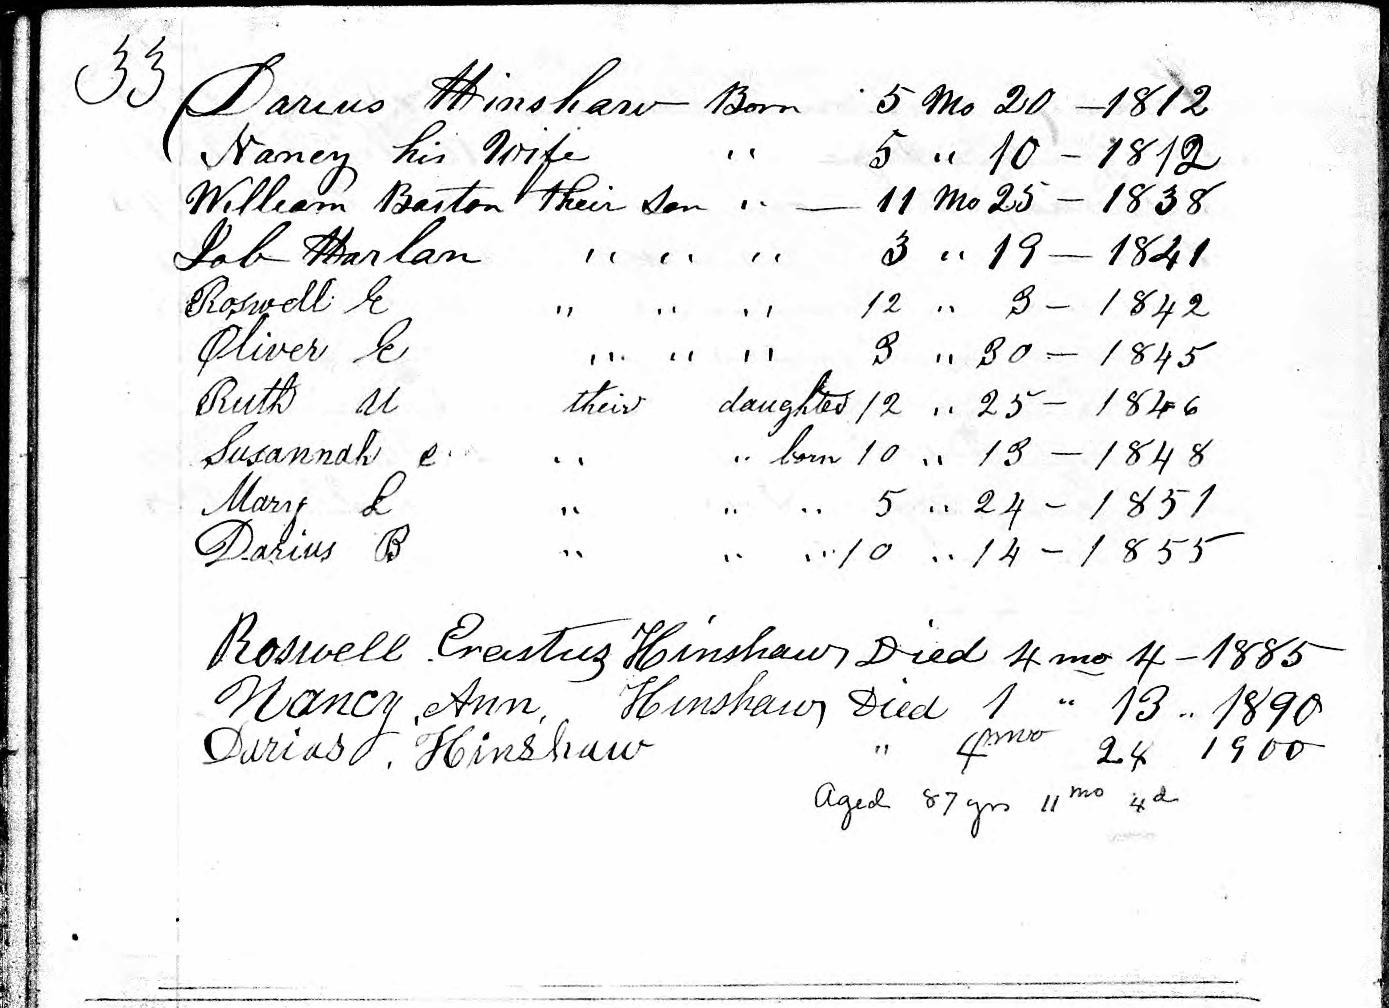 33
Darius Hinshaw Born 5 Mo 20 - 1812
Nancy his Wife " 5 " 10 - 1812
William Barton their son " — 11 Mo 25 - 1838
Job Harlan " " " 3 " 19 - 1841
Roswell E " " " 12 " 3 - 1842
Oliver E " " " 3 " 30 - 1845
Ruth M their daughter 12 " 25 - 1846
Susannah C " " born 10 " 13 - 1848
Mary L " " " 5 " 24 - 1851
Darius B " " " 10 " 14 - 1855
Roswell Erastus Hinshaw Died 4 mo 4 - 1885
Nancy Ann Hinshaw Died 1 " 13 " 1890
Darias Hinshaw " 4 mo 24 1900
Aged 87 yrs 11 mo 4 d